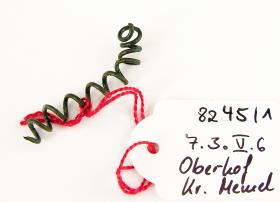 8245/1
7.3.V.6
Oberhof
Kr. Memel